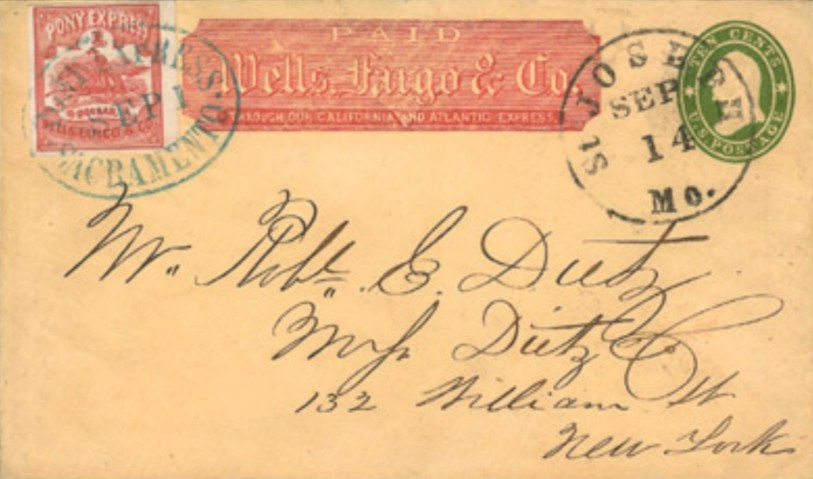 PONY EXPRESS
WELLS, FARGO & CO.
PONY EXPRESS.
SEP 1
SACRAMENTO
PAID
Wells, Fargo & Co.
THROUGH OUR CALIFORNIA AND ATLANTIC EXPRESS.
ST JOSEPH
SEP
14
Mo.
TEN CENTS
U.S. POSTAGE
Mr. Robt. E. Dietz
Dietz & Co
132 William St
New York